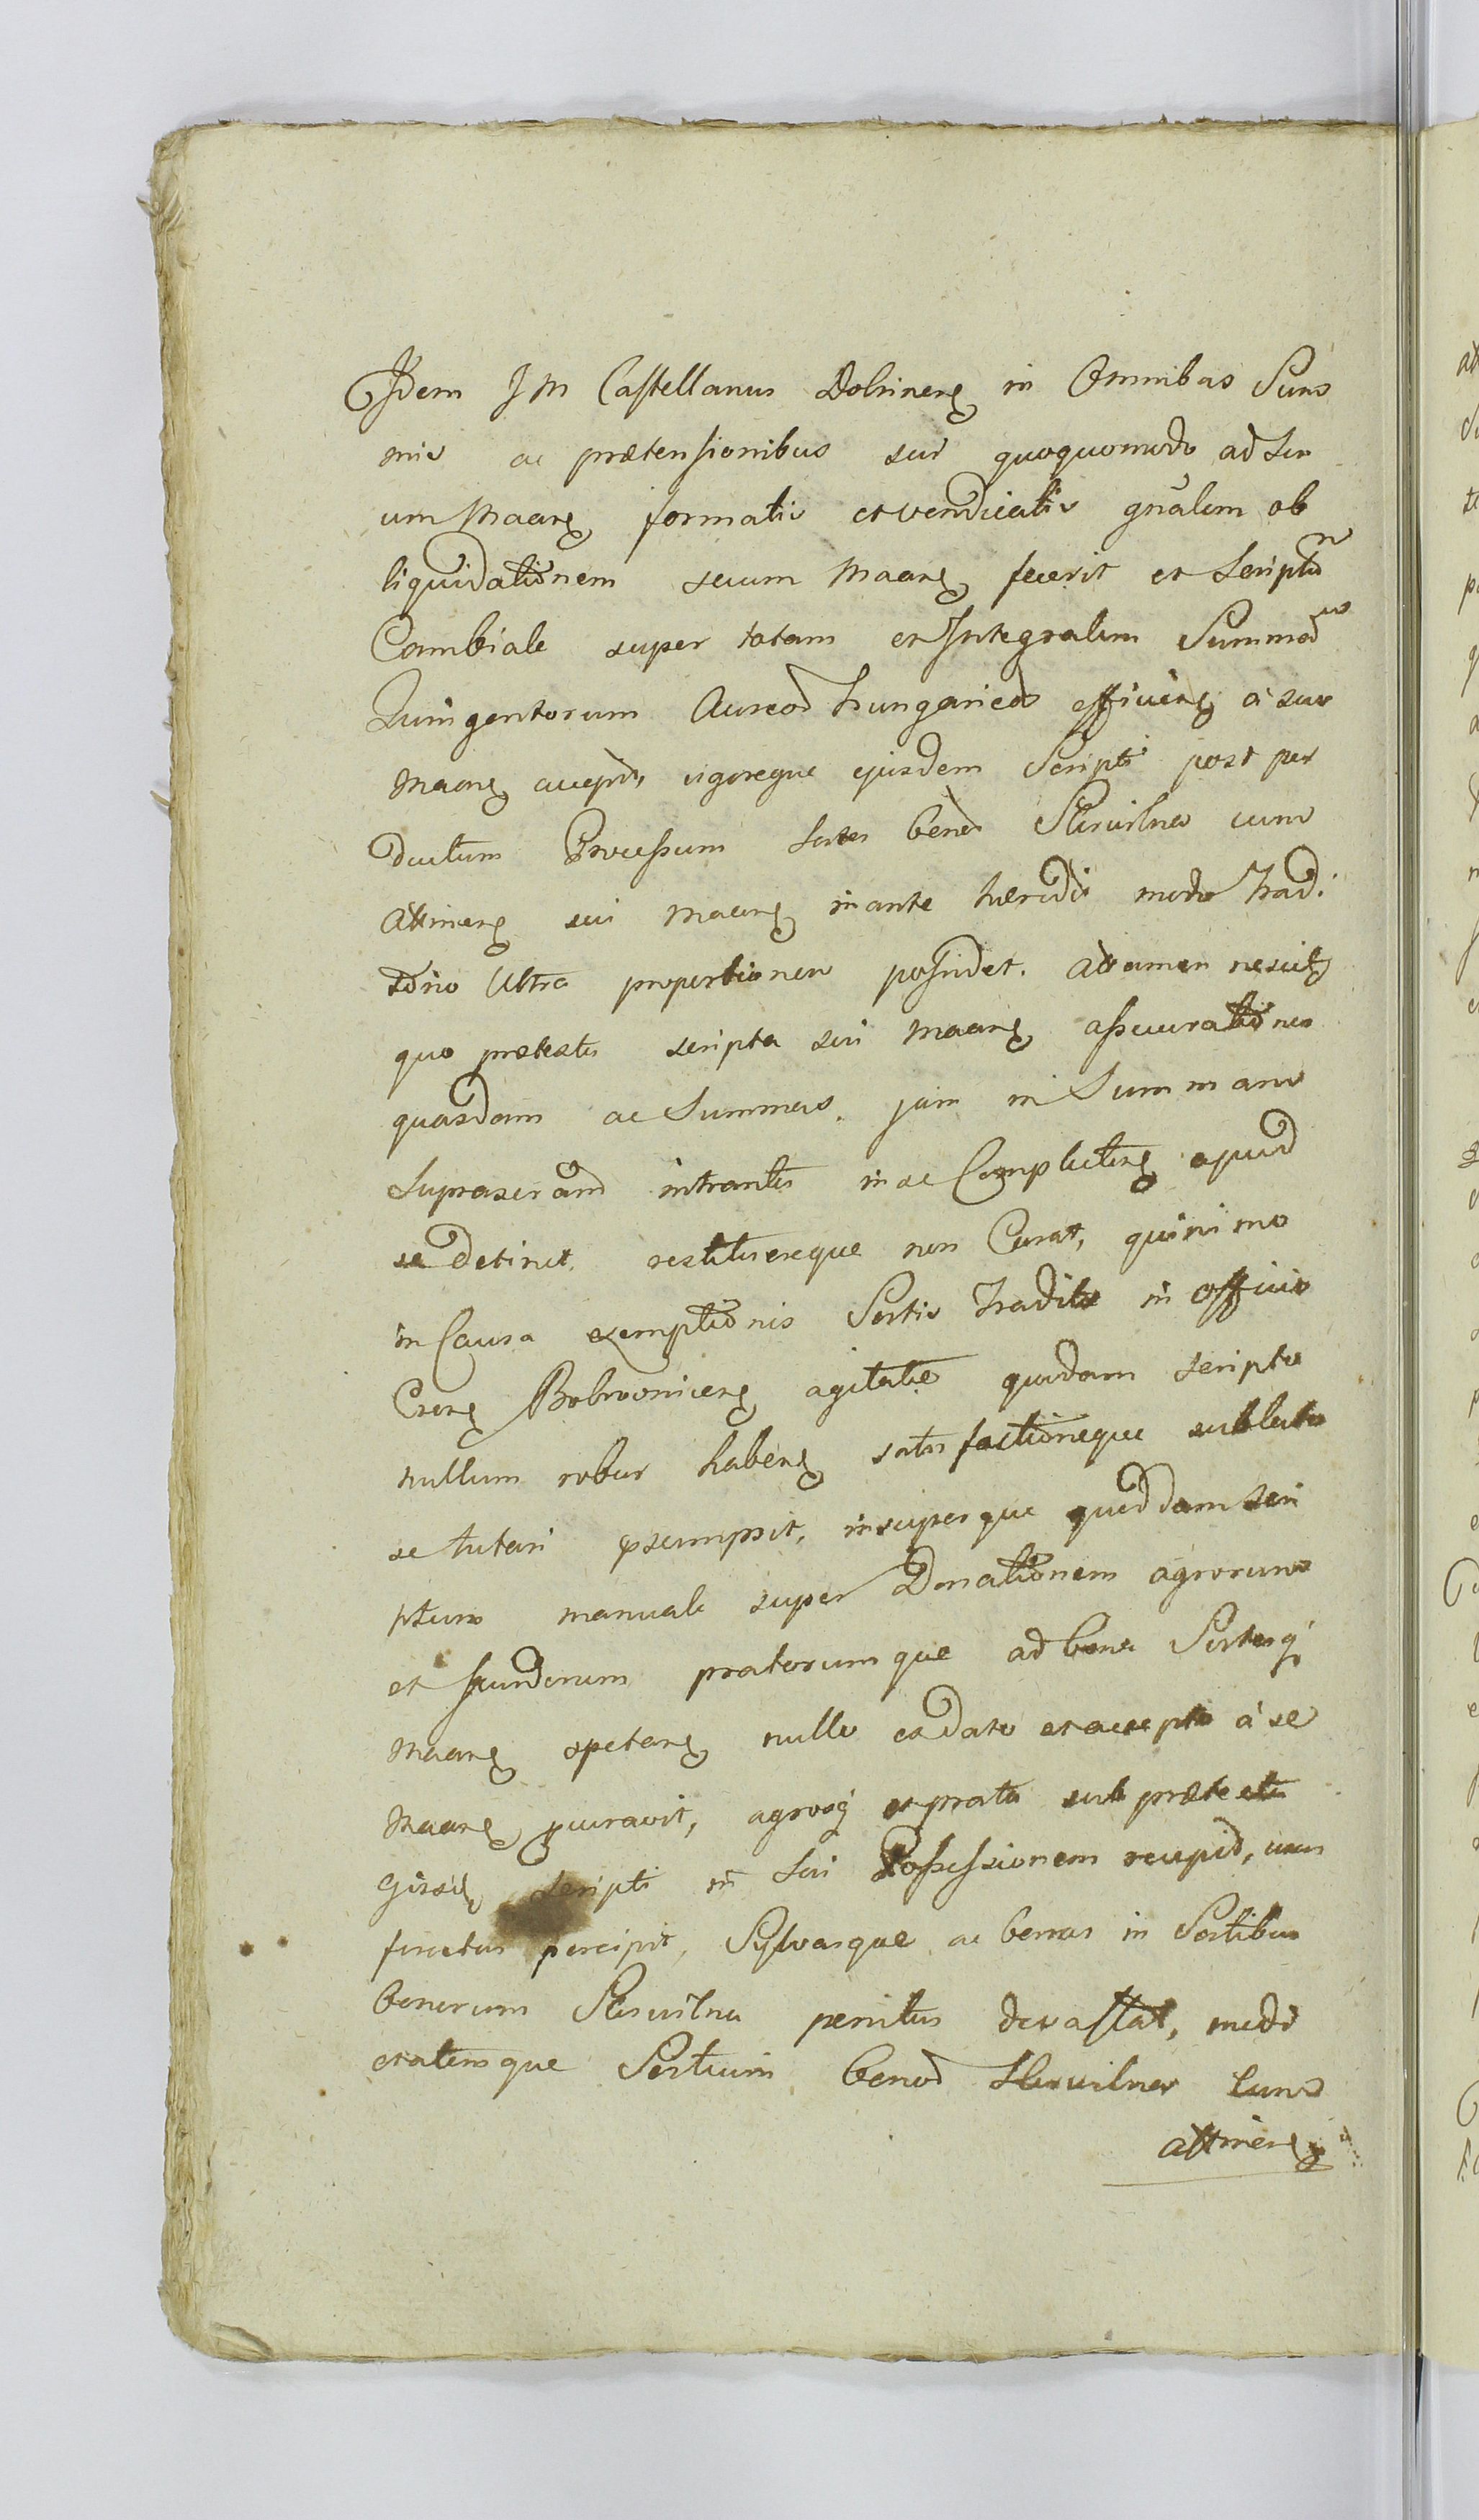 Idem J M Castellanus Dobrinens in Omnibus Sum
mis ac prætensionibus sui quoquomodo ad Se
um Maans formatis et vendicatis gnãlem ob
liquidationem secum Maans fecerit et Scriptũ
Cambiale super totam et Integralem Summam
Quingentorum Aureor hungaricor efficiens à suo
Maans accepit, vigoreque ejusdem Scripti post per
ductum Processum Sortes Bonor cum
Attinens sui Maans in ante hæredit modo Tradi
torio Ultra proportionem possidet. Attamen nescitq
quo prætextu scripta sui Maans assecurationes
quasdam ac Summas jam in Summam
Suprascr intrantes in se Complectens apud
se detinet restituereque non Curat, quinimo
in Causa exemptionis Sortis Traditæ in officio
Crens Bobrovnicens agitatæ quædam scripta
nullum robur habens satisfactioneque sublata
se tutari præsumpsit, insuperque quoddam Scri
ptum manuale super Donationem agrorum
et fundorum pratorumque ad bona Sortesq
Maans spectans nullo ex dato et accepto à se
Maans procuravit, agrosq et prata sub prætextu
scripti in Sui Possessionem recepit, usus
fructus percipit, Sylvasque ac borras in Sortibus
bonorum penitus devastat, medi
etatemque Sortium Bonor Cum
attinens